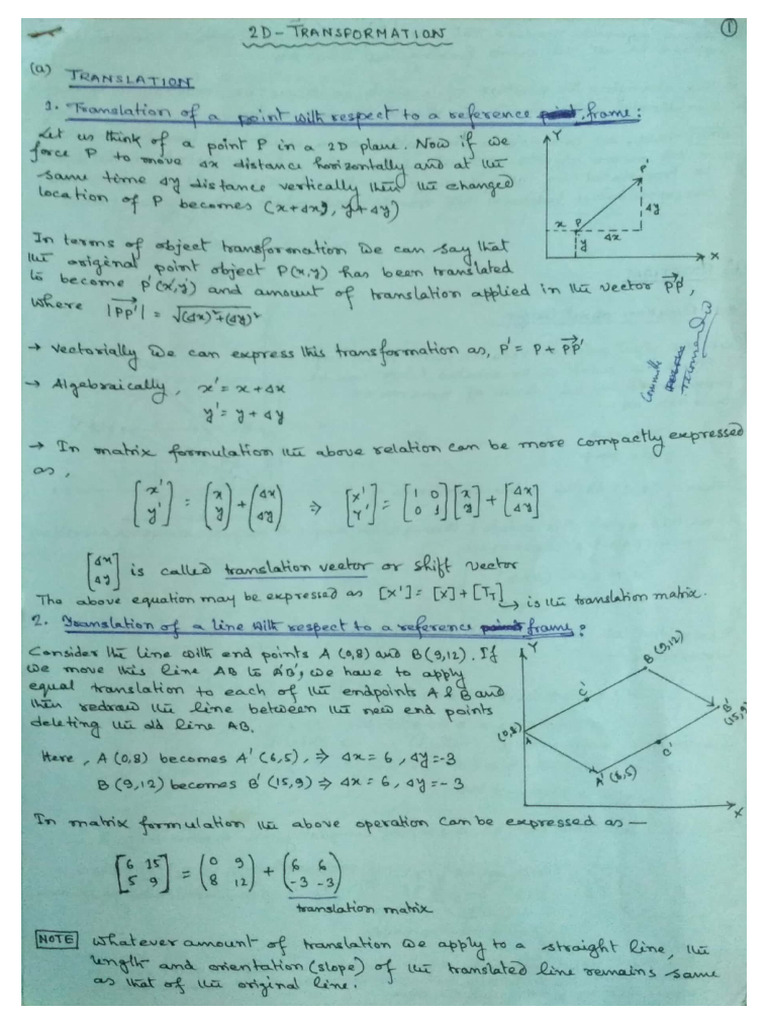 2D-TRANSFORMATION
1
(a) TRANSLATION
1. Translation of a point with respect to a reference frame:
Let us think of a point P in a 2D plane. Now if we
force P to move Δx distance horizontally and at the
same time Δy distance vertically then the changed
location of P becomes (x+Δx, y+Δy)
Y
P'
Δy
x
P
Δx
y
X
In terms of object transformation we can say that
the original point object P(x,y) has been translated
to become P'(x',y') and amount of translation applied in the vector PP',
where |PP'| = √(Δx)²+(Δy)²
→ Vectorially we can express this transformation as, P' = P + PP'
→ Algebraically, x' = x + Δx
y' = y + Δy
→ In matrix formulation the above relation can be more compactly expressed
as,
[x' y'] = (x y) + (Δx Δy) ⇒ [x' Y'] = [1 0 0 1] [x y] + [Δx Δy]
[Δx Δy] is called translation vector or shift vector
The above equation may be expressed as [X'] = [X] + [T_T] → is the translation matrix.
2. Translation of a line with respect to a reference frame:
Consider the line with end points A (0,8) and B (9,12). If
we move this line AB to A'B', we have to apply
equal translation to each of the endpoints A & B and
then redraw the line between the new end points
deleting the old line AB.
Y
B (9,12)
C'
(0,8)
A
B' (15,9)
C'
A' (6,5)
X
Here, A (0,8) becomes A' (6,5), ⇒ Δx = 6, Δy = -3
B (9,12) becomes B' (15,9) ⇒ Δx = 6, Δy = -3
In matrix formulation the above operation can be expressed as —
[6 15 5 9] = (0 9 8 12) + (6 6 -3 -3)
translation matrix
NOTE Whatever amount of translation we apply to a straight line, the
length and orientation (slope) of the translated line remains same
as that of the original line.